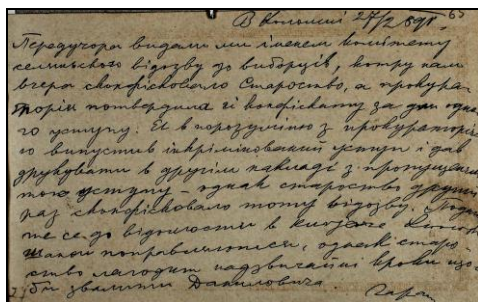 В Коломиї 27/2 89 р. 63
Передучора видали ми іменем комітету
селяньского відозву до виборців, котру нам
вчера сконфісковало Староство, а прокура-
торія потвердила єї конфіскату за для одно-
го уступу. Я в порозуміню з прокураторі-
єю випустив інкрімінований уступ і дав
друкувати в другім накладі з пропущенєм
того уступу – однак староство другий
раз сконфісковало тоту відозву.
же се до відомости в
поправляютися, однак старо-
ство лагодит надзвичайні кроки що-
би звалити Даниловича.